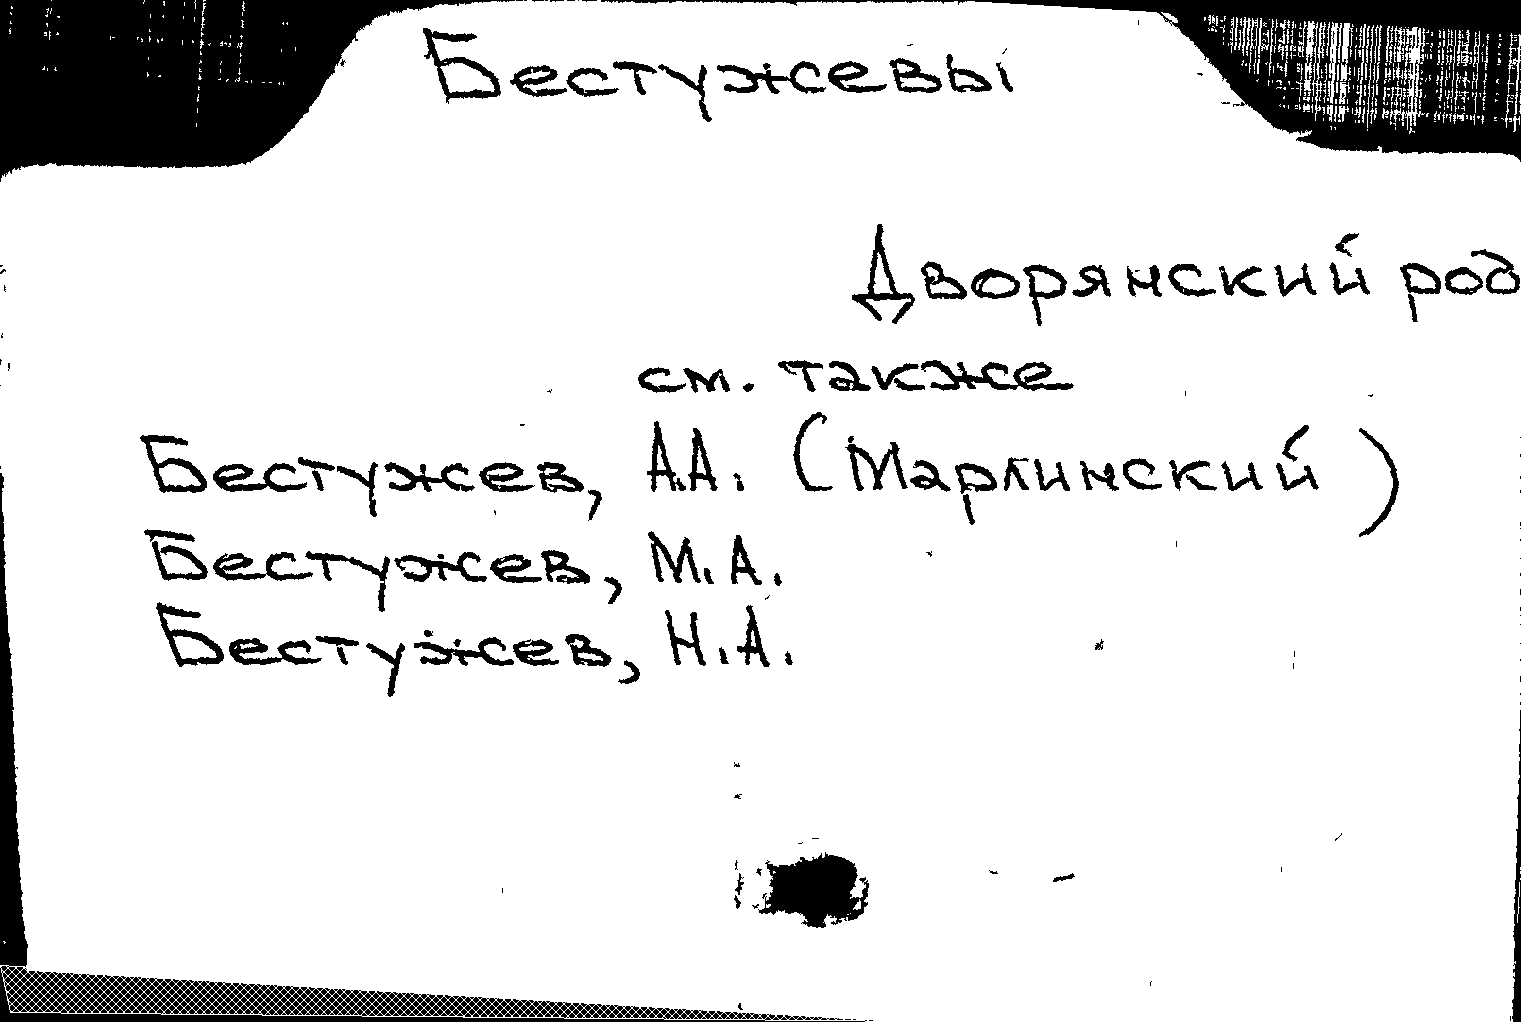 Бестужевы
Дворянский род
см. также
Бестужев, А.А. (Марлинский)
Бестужев, М.А.
Бестужев, Н.А.